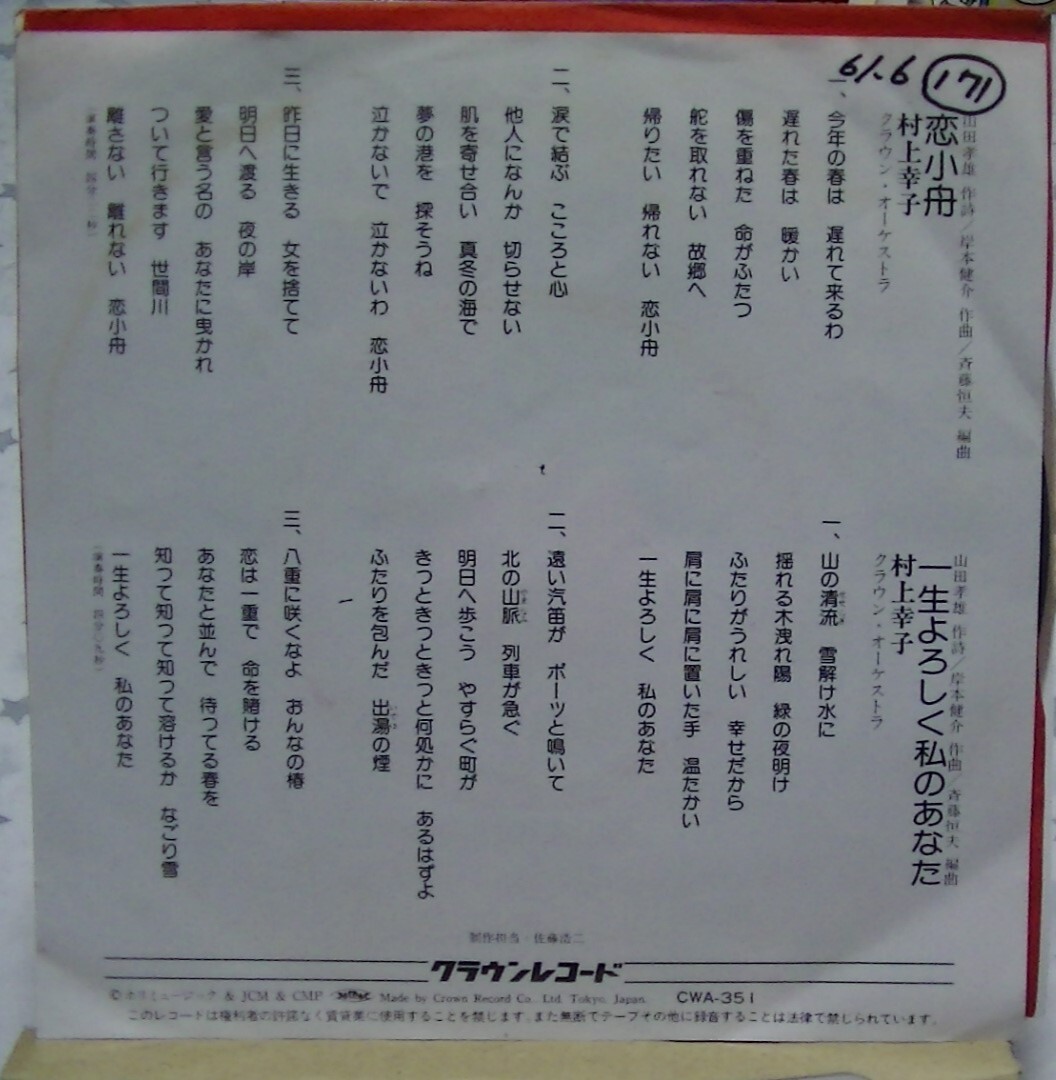 61.6
171
山田孝雄 作詩／岸本健介 作曲／斉藤恒夫 編曲
恋小舟
村上幸子
クラウン・オーケストラ
一、今年の春は 遅れて来るわ
遅れた春は 暖かい
傷を重ねた 命がふたつ
舵を取れない 故郷へ
帰りたい 帰れない 恋小舟
二、涙で結ぶ こころと心
他人になんか 切らせない
肌を寄せ合い 真冬の海で
夢の港を 探そうね
泣かないで 泣かないわ 恋小舟
三、昨日に生きる 女を捨てて
明日へ渡る 夜の岸
愛と言う名の あなたに曳かれ
ついて行きます 世間川
離さない 離れない 恋小舟
（演奏時間 四分 秒）
山田孝雄 作詩／岸本健介 作曲／斉藤恒夫 編曲
一生よろしく私のあなた
村上幸子
クラウン・オーケストラ
一、山の清流 雪解け水に
揺れる木洩れ陽 緑の夜明け
ふたりがうれしい 幸せだから
肩に肩に肩に置いた手 温たかい
一生よろしく 私のあなた
二、遠い汽笛が ポーッと鳴いて
北の山脈 列車が急ぐ
明日へ歩こう やすらぐ町が
きっときっときっと何処かに あるはずよ
ふたりを包んだ 出湯の煙
三、八重に咲くなよ おんなの椿
恋は一重で 命を賭ける
あなたと並んで 待ってる春を
知って知って知って溶けるか なごり雪
一生よろしく 私のあなた
（演奏時間 四分〇九秒）
制作担当・佐藤浩二
クラウンレコード
Ⓒホリミュージック & JCM & CMP Made by Crown Record Co., Ltd. Tokyo, Japan. CWA-351
このレコードは権利者の許諾なく賃貸業に使用することを禁じます。また無断でテープその他に録音することは法律で禁じられています。